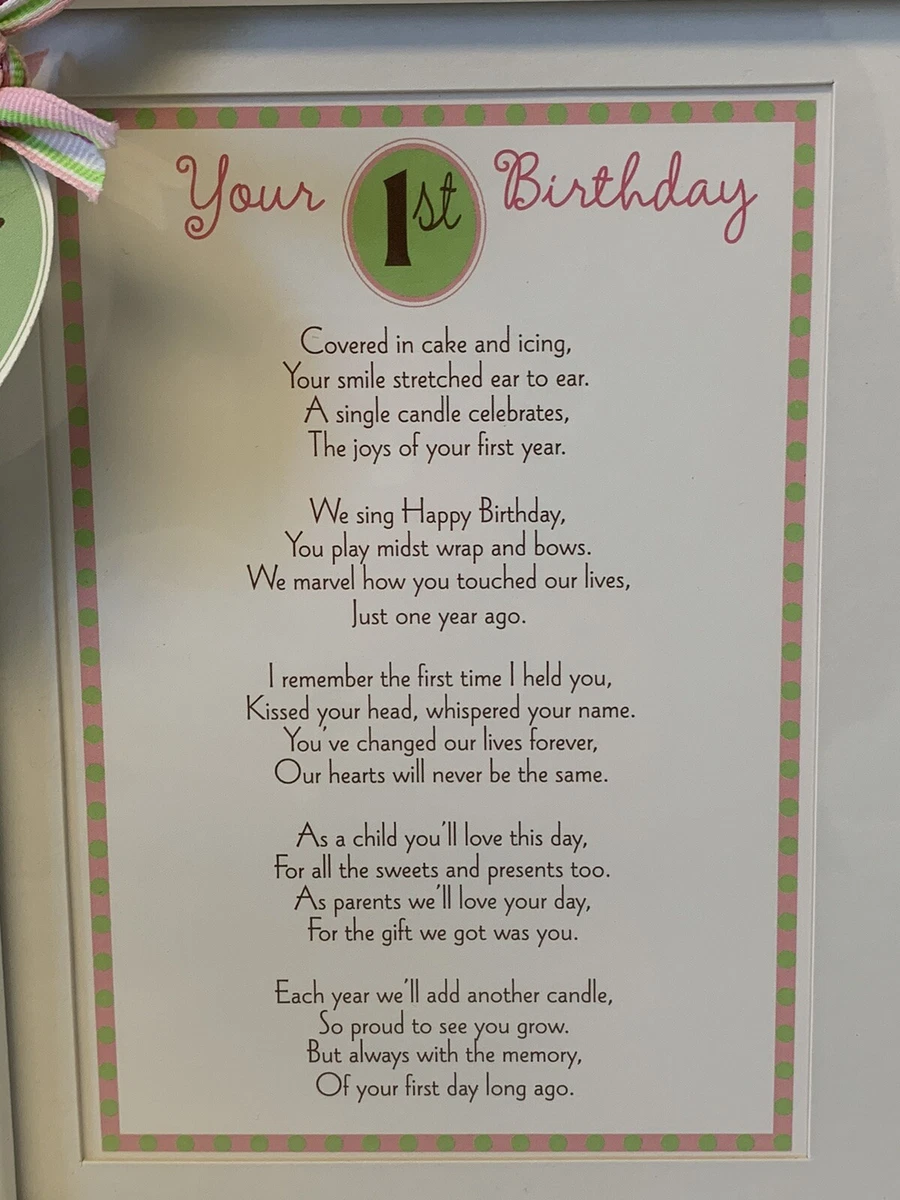 Your 1st Birthday
Covered in cake and icing,
Your smile stretched ear to ear.
A single candle celebrates,
The joys of your first year.
We sing Happy Birthday,
You play midst wrap and bows.
We marvel how you touched our lives,
Just one year ago.
I remember the first time I held you,
Kissed your head, whispered your name.
You've changed our lives forever,
Our hearts will never be the same.
As a child you'll love this day,
For all the sweets and presents too.
As parents we'll love your day,
For the gift we got was you.
Each year we'll add another candle,
So proud to see you grow.
But always with the memory,
Of your first day long ago.